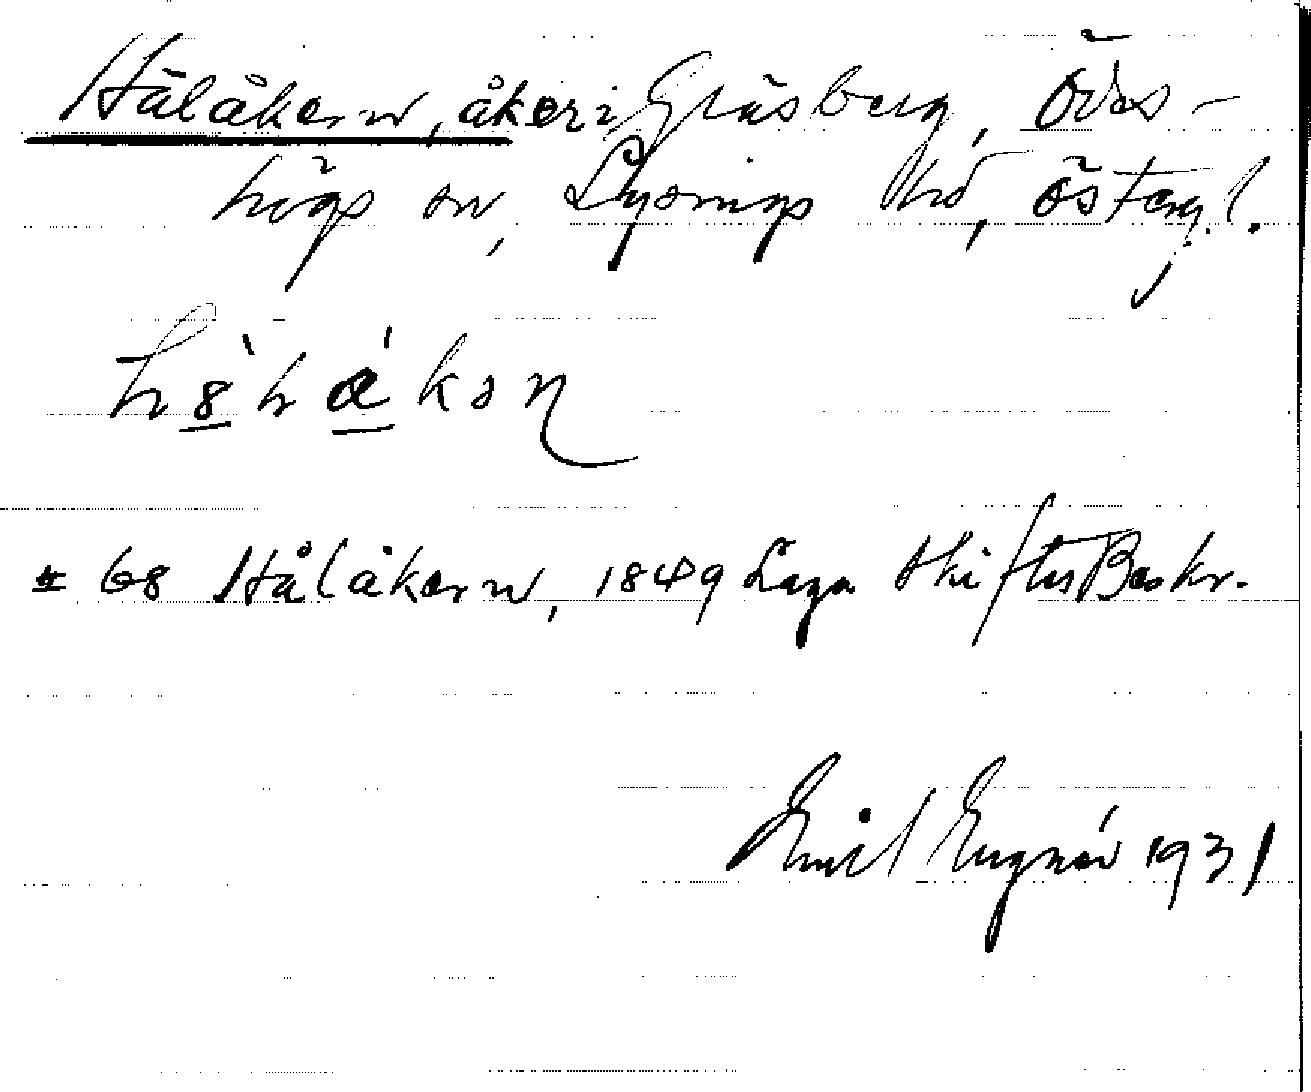 Hålåkern, åker i Gråsberg, Ödes-
högs sn, Lysings hd, Östergl.
# 68 Hålåkern, 1849 Laga Skiftes Beskr.
Emil Engnér 1931